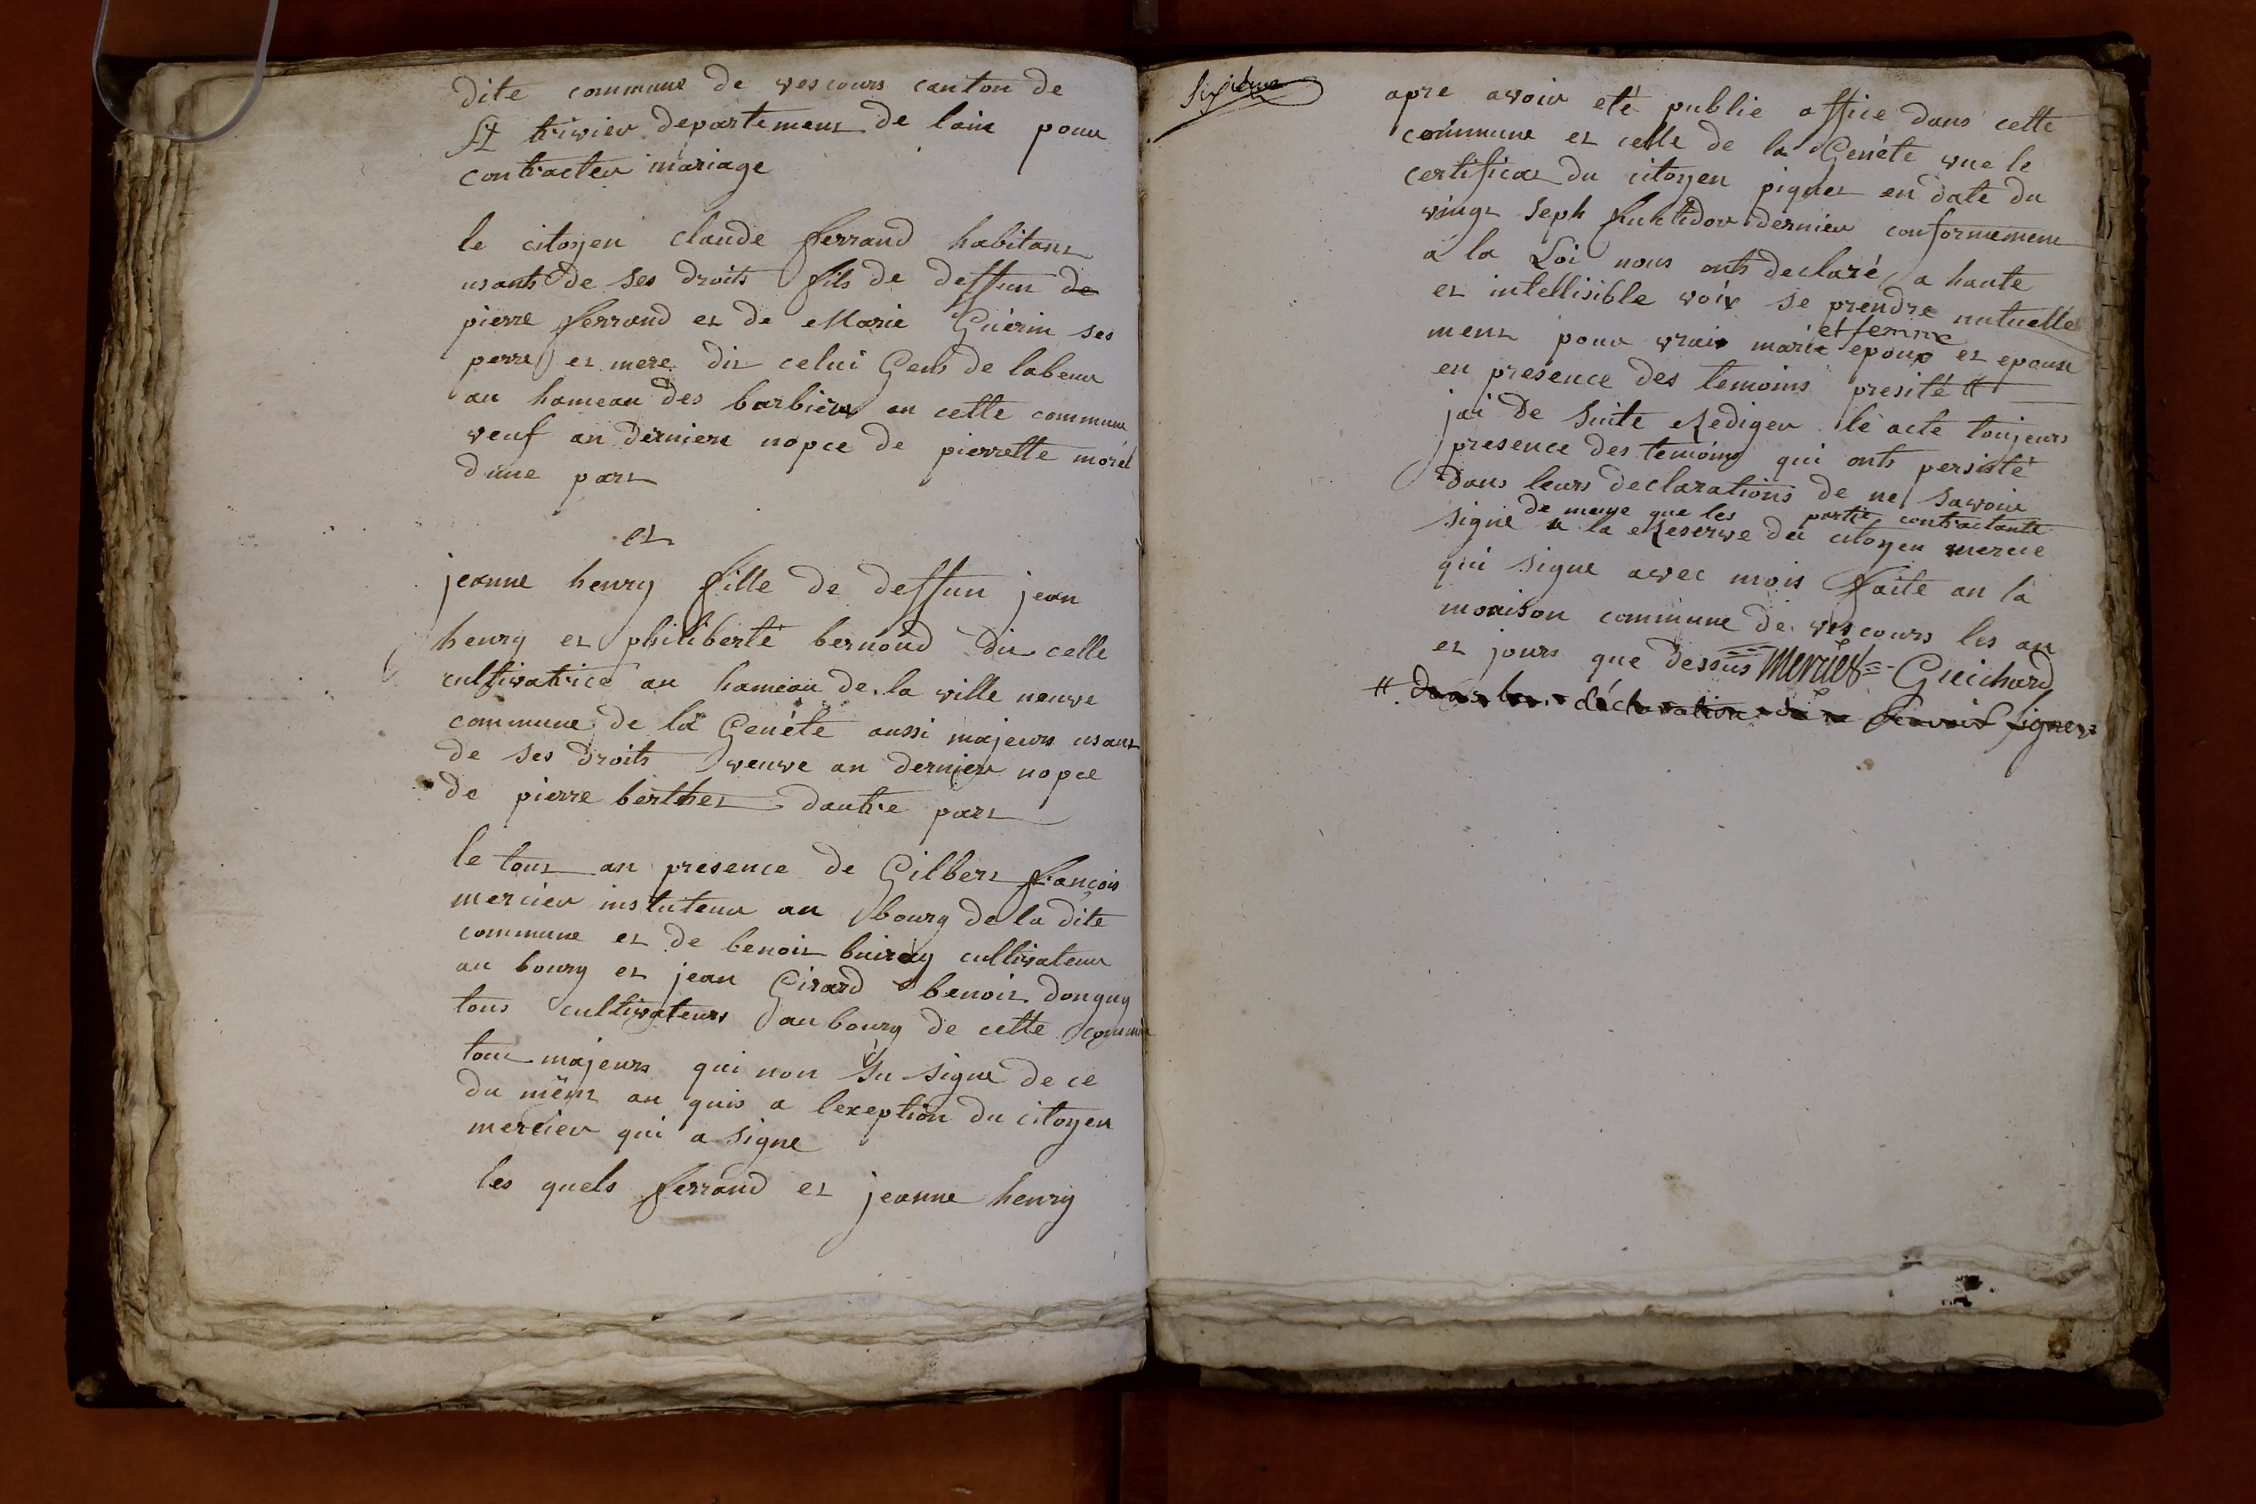 dite commune de vescours canton de
St trivier departement de lain pour
contracter mariage
le citoyen claude ferrand habitant
usants de ses droits fils de deffun de
pierre ferrand et de Marie Guerin ses
perre et mere dit celui Gens de labeur
au hameau des barbiers en cette commune
veuf an derniere nopce de pierrette morel
dune part
et
jeanne henry fille de deffun jean
henry et philiberte bernoud dit celle
cultivatrice au hameau de la ville neuve
commune de la Genéte aussi majeurs usant
de ses droits veuve an dernier nopce
de pierre berthet dautre part
le tout an presence de Gilbert françois
mercier instuteur au bourg de la dite
commune et de benoit buiray cultivateur
au bourg et jean Girard benoit donguy
tous cultivateurs au bourg de cette commune
tout majeurs qui non su signe de ce
du ment an quis a lexeption du citoyen
mercier qui a signe
les quels ferrand et jeanne henry
Sixième
apre avoir eté publie office dans cette
commune et celle de la Genéte vue le
certificat du citoyen piquet en date du
vingt seph fruktidor dernier conformement
a la Loi nous onts declaré a haute
et intellisible voix se prendre mutuelle
et femme
ment pour vrai marié epoux et epouse
en presence des temoins presité #
jai de suite Rediger le acte toujeurs
presence des temoins qui onts persisté
dans leurs declarations de ne savoir
de meme que les partie contractante
signe a la Reserve du citoyen mercie
qui signe avec mois faite an la
maison commune de vescours les an
et jours que dessus Mercier Guichard
# dans leur déclaration de ne scavoir signer